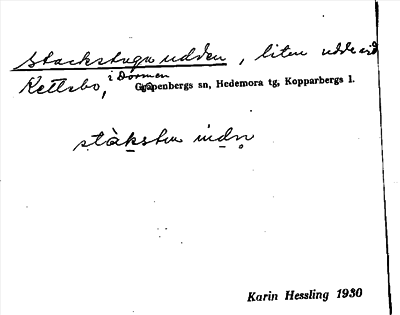 Stackstuguudden, liten udde vid
Kettsbo, i Dormen Garpenbergs sn, Hedemora tg, Kopparbergs l.
stàkstuu
Karin Hessling 1930